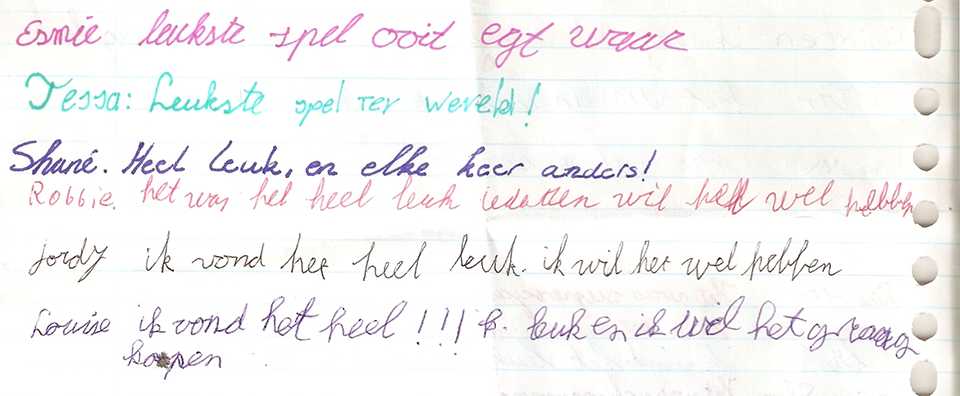 Esmée leukste spel ooit egt waar
Tessa: Leukste spel ter wereld!
Shané. Heel leuk, en elke keer anders!
Robbie. het was het heel leuk wil het wel hebben.
jordy ik vond het heel leuk. ik wil het wel hebben
Louise ik vond het heel!!! leuk en ik wil het graag
kopen